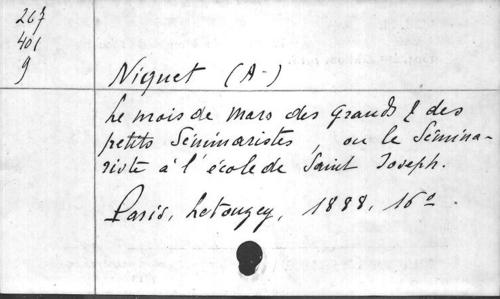 267
401
9
Niquet (A-)
Le mois de mars des grands & des
petits Séminaristes, ou le Sémina-
riste à l'école de Saint Joseph.
Paris, Letouzey, 1888, 16°.